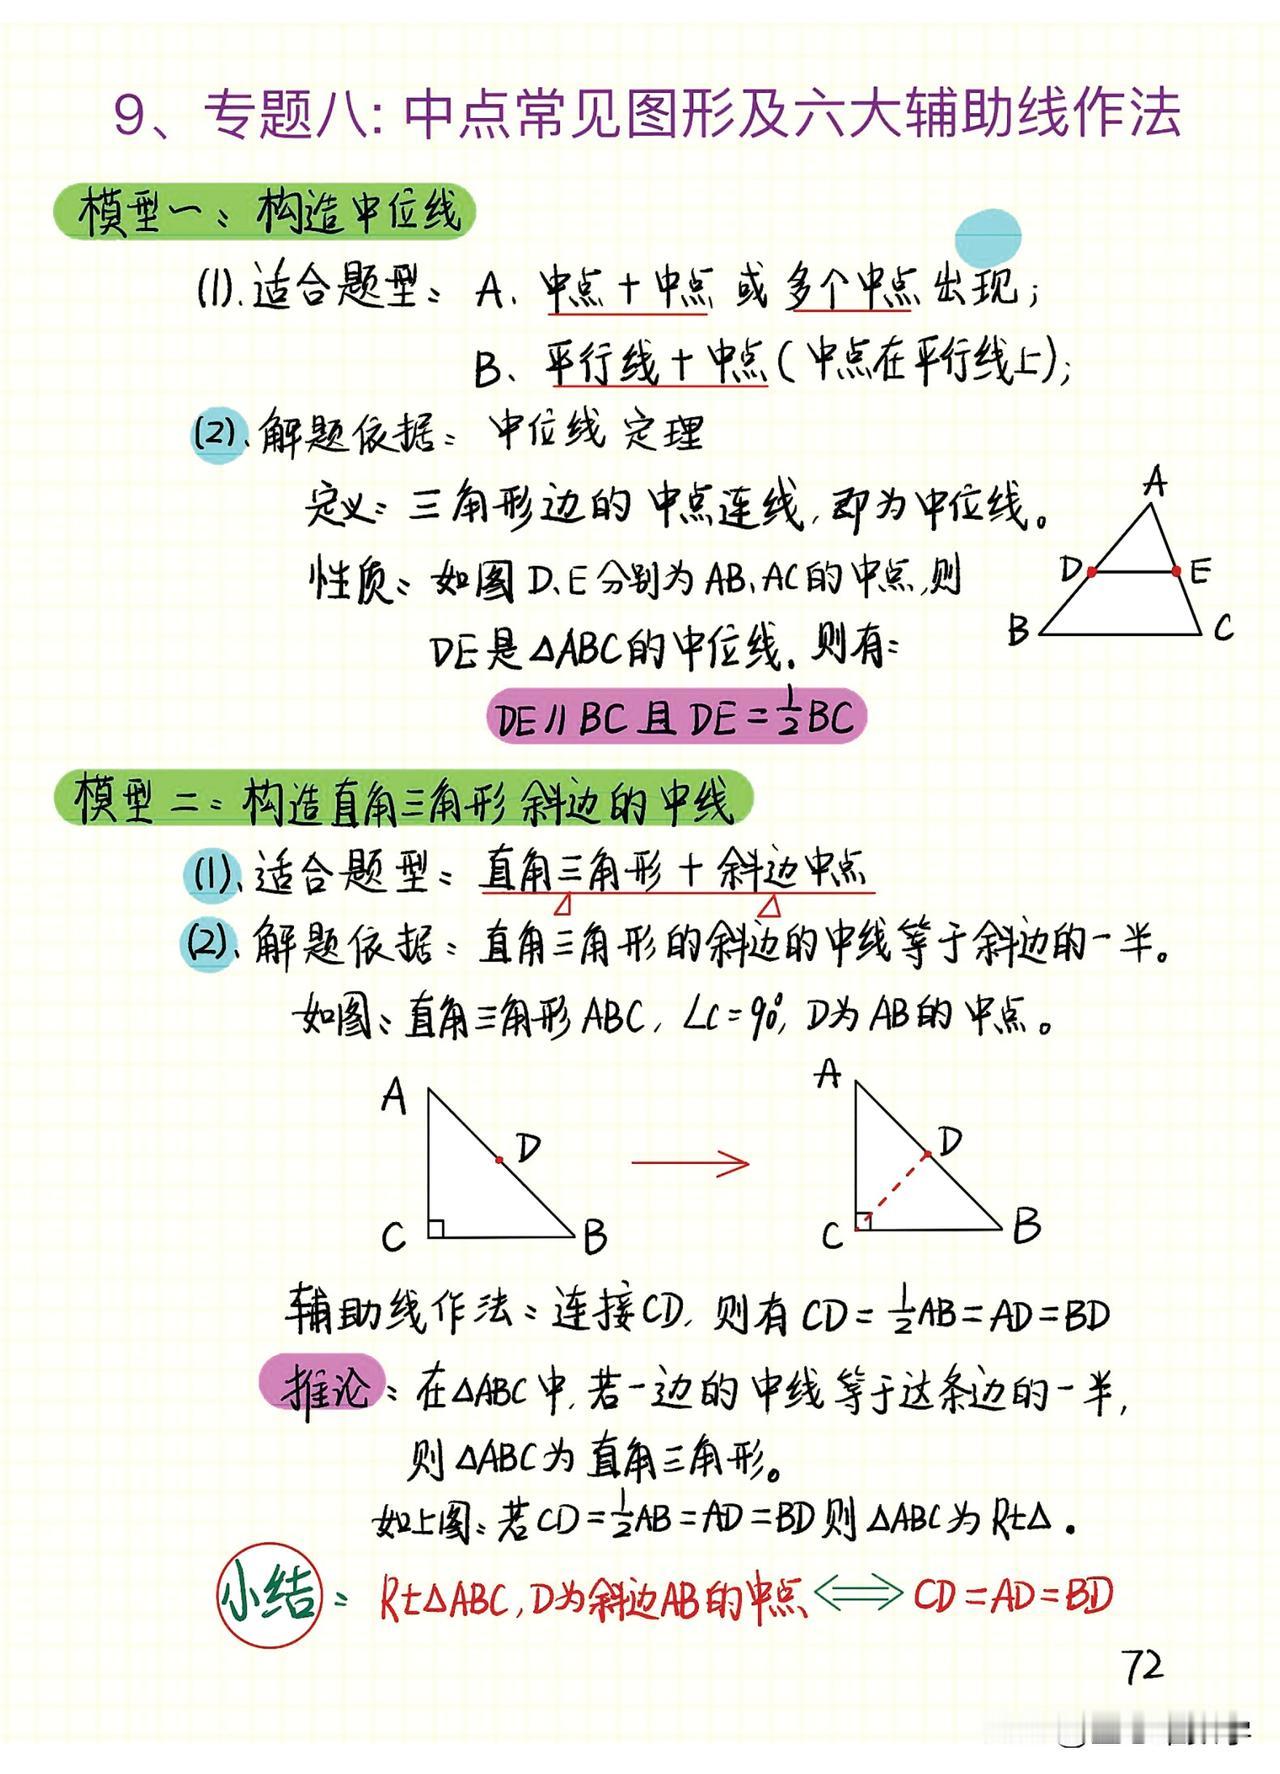 9、专题八: 中点常见图形及六大辅助线作法
模型一：构造中位线
(1).适合题型：A、中点＋中点 或 多个中点 出现；
B、平行线＋中点(中点在平行线上)；
(2).解题依据：中位线 定理
定义：三角形边的 中点连线，即为中位线。
性质：如图 D、E 分别为 AB、AC 的中点，则
DE 是 △ABC 的中位线。则有：
DE∥BC 且 DE=1/2BC
A
D E
B C
模型二：构造直角三角形斜边的中线
(1)、适合题型：直角三角形＋斜边中点
(2)、解题依据：直角三角形的斜边的中线等于斜边的一半。
如图：直角三角形 ABC，∠C=90°，D为 AB 的中点。
A
D
C B
A
D
C B
辅助线作法：连接CD，则有 CD=1/2AB=AD=BD
推论：在△ABC中，若一边的中线等于这条边的一半，
则 △ABC为 直角三角形。
如上图：若 CD=1/2AB=AD=BD 则 △ABC 为 Rt△.
小结：Rt△ABC，D为斜边AB的中点⟺CD=AD=BD
72